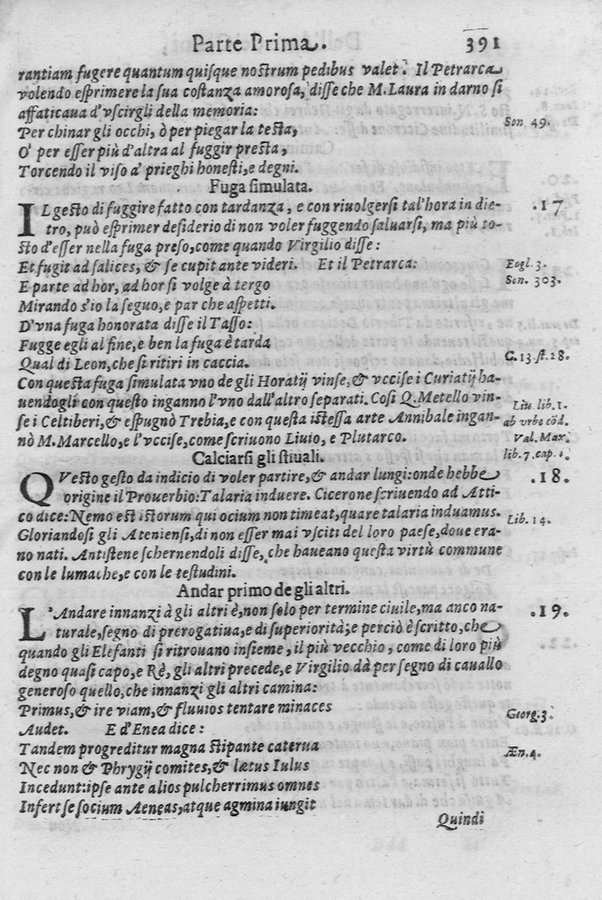 Parte Prima. 391
rantiam fugere quantum quisque nostrum pedibus valet. Il Petrarca
volendo esprimere la sua costanza amorosa, disse che M. Laura in darno si
affaticaua d'vscirgli della memoria:
Per chinar gli occhi, ò per piegar la testa, Son. 49.
O' per esser più d'altra al fuggir presta,
Torcendo il viso a' prieghi honesti, e degni.
Fuga simulata.
IL gesto di fuggire fatto con tardanza, e con riuolgersi tal'hora in die- .17.
tro, può esprimer desiderio di non voler fuggendo saluarsi, ma più to-
sto d'esser nella fuga preso, come quando Virgilio disse:
Et fugit ad salices, & se cupit ante videri. Et il Petrarca: Eogl. 3.
E parte ad hor, ad hor si volge à tergo Son. 303.
Mirando s'io la seguo, e par che aspetti.
D'vna fuga honorata disse il Tasso:
Fugge egli al fine, e ben la fuga è tarda
Qual di Leon, che si ritiri in caccia. C. 13. st. 28.
Con questa fuga simulata vno de gli Horatij vinse, & vccise i Curiatij ha-
uendogli con questo inganno l'vno dall'altro separati. Così Q. Metello vin- Liu lib. 1.
se i Celtiberi, & espugnò Trebia, e con questa istessa arte Annibale ingan- ab vrbe cōd.
nò M. Marcello, e l'vccise, come scriuono Liuio, e Plutarco. Val. Max
Calciarsi gli stiuali. lib. 7. cap.
QVesto gesto da indicio di voler partire, & andar lungi: onde hebbe .18.
origine il Prouerbio: Talaria induere. Cicerone scriuendo ad Atti-
co dice: Nemo est istorum qui ocium non timeat, quare talaria induamus. Lib. 14.
Gloriandosi gli Ateniensi, di non esser mai vsciti del loro paese, doue era-
no nati. Antistene schernendoli disse, che haueano questa virtù commune
con le lumache, e con le testudini.
Andar primo de gli altri.
L'Andare innanzi à gli altri è, non solo per termine ciuile, ma anco na- .19.
turale, segno di prerogatiua, e di superiorità; e perciò è scritto, che
quando gli Elefanti si ritrouano insieme, il più vecchio, come di loro più
degno quasi capo, e Rè, gli altri precede, e Virgilio dà per segno di cauallo
generoso quello, che innanzi gli altri camina:
Primus, & ire viam, & fluuios tentare minaces Georg. 3.
Audet. E d'Enea dice:
Tandem progreditur magna stipante caterua Æn. 4.
Nec non & Phrygij comites, & lætus Iulus
Incedunt: ipse ante alios pulcherrimus omnes
Infert se socium Aeneas, atque agmina iungit
Quindi